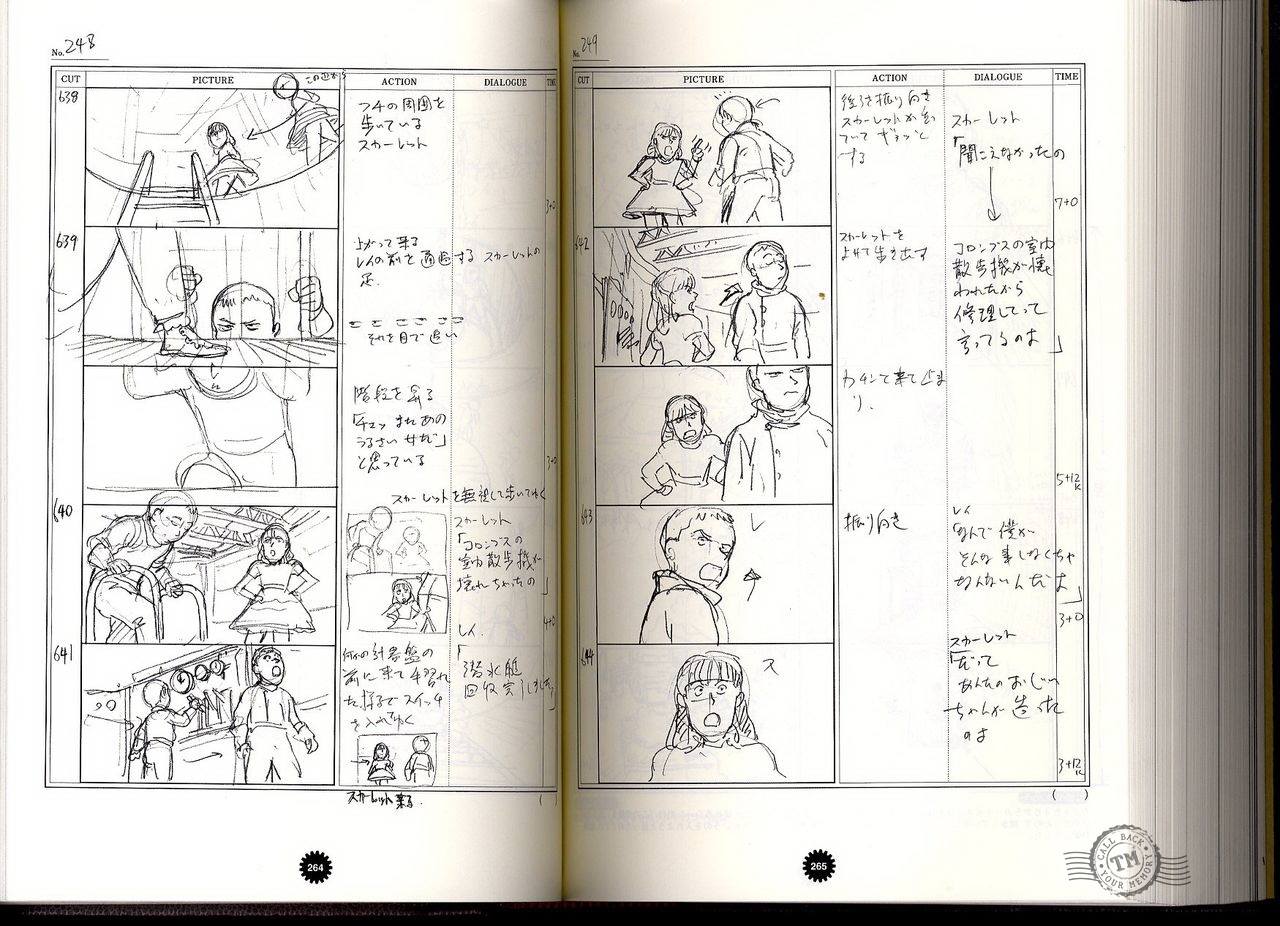 No. 248
CUT PICTURE ACTION DIALOGUE TIME
638
フチの周囲を
歩いている
スカーレット
3+0
639
上がって来る
レイの前を通過する スカーレットの
足.
それを目で追い
階段を昇る
「チェッ またあの
うるさい女だ」
と思っている
3+0
スカーレットを無視して歩いてゆく
640
スカーレット
「コロンブスの
室内散歩機が
壊れちゃたの」
4+0
641
レイ.
「潜水艇
回収完了しました」
前に来て手習れ
た様子でスイッチ
を入れてゆく
スカーレット来る.
264
No. 249
CUT PICTURE ACTION DIALOGUE TIME
後ろを振り向き
スカーレットが
ギョッと
する
スカーレット
「聞こえなかったの
7+0
642
スカーレットを
よけて歩き出す
コロンブスの室内
散歩機が壊
われたから
修理してって
言ってるのよ」
5+12K
643
振り向き
レ
レイ
「なんで僕が
そんな事しなくちゃ
なんないんだよ」
3+0
644
ス
スカーレット
「だって
あんたのおじい
ちゃんが造った
のよ
3+12K
( )
265
CALL BACK
TM
YOUR MEMORY